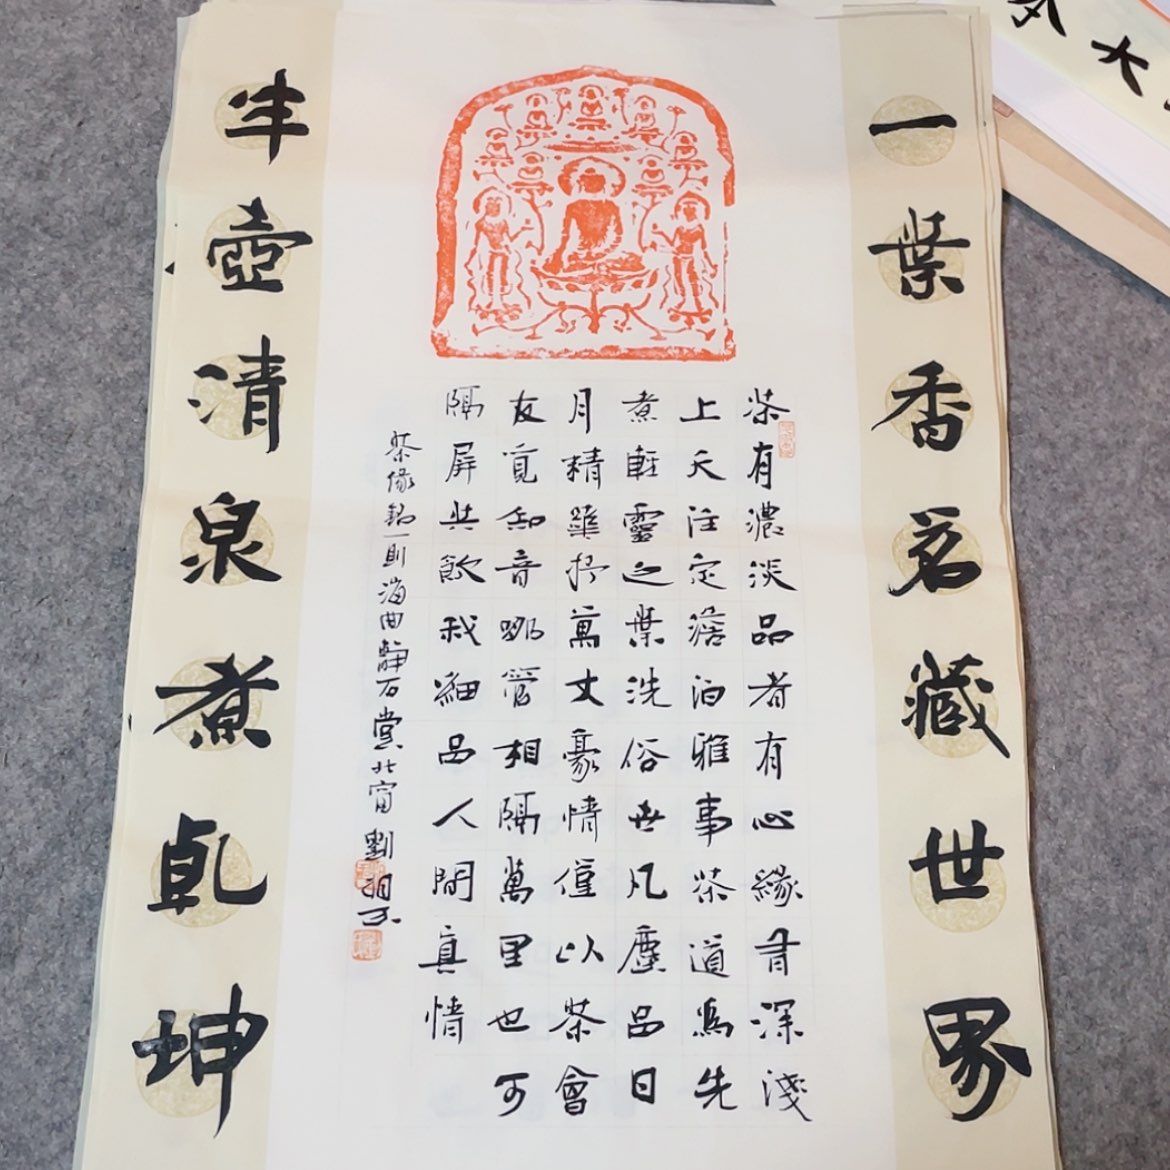 一葉香茗藏世界
茶有濃淡品者有心緣有深淺
上天注定澹泊雅事茶道為先
煮輕靈之葉洗俗世凡塵品日
月精抒萬丈豪情僅以茶會
友覓知音哪管相隔萬里也可
隔屏共飲我細品人間真情
茶緣銘一則海曲靜石堂北窗劉
半壺清泉煮乾坤
大